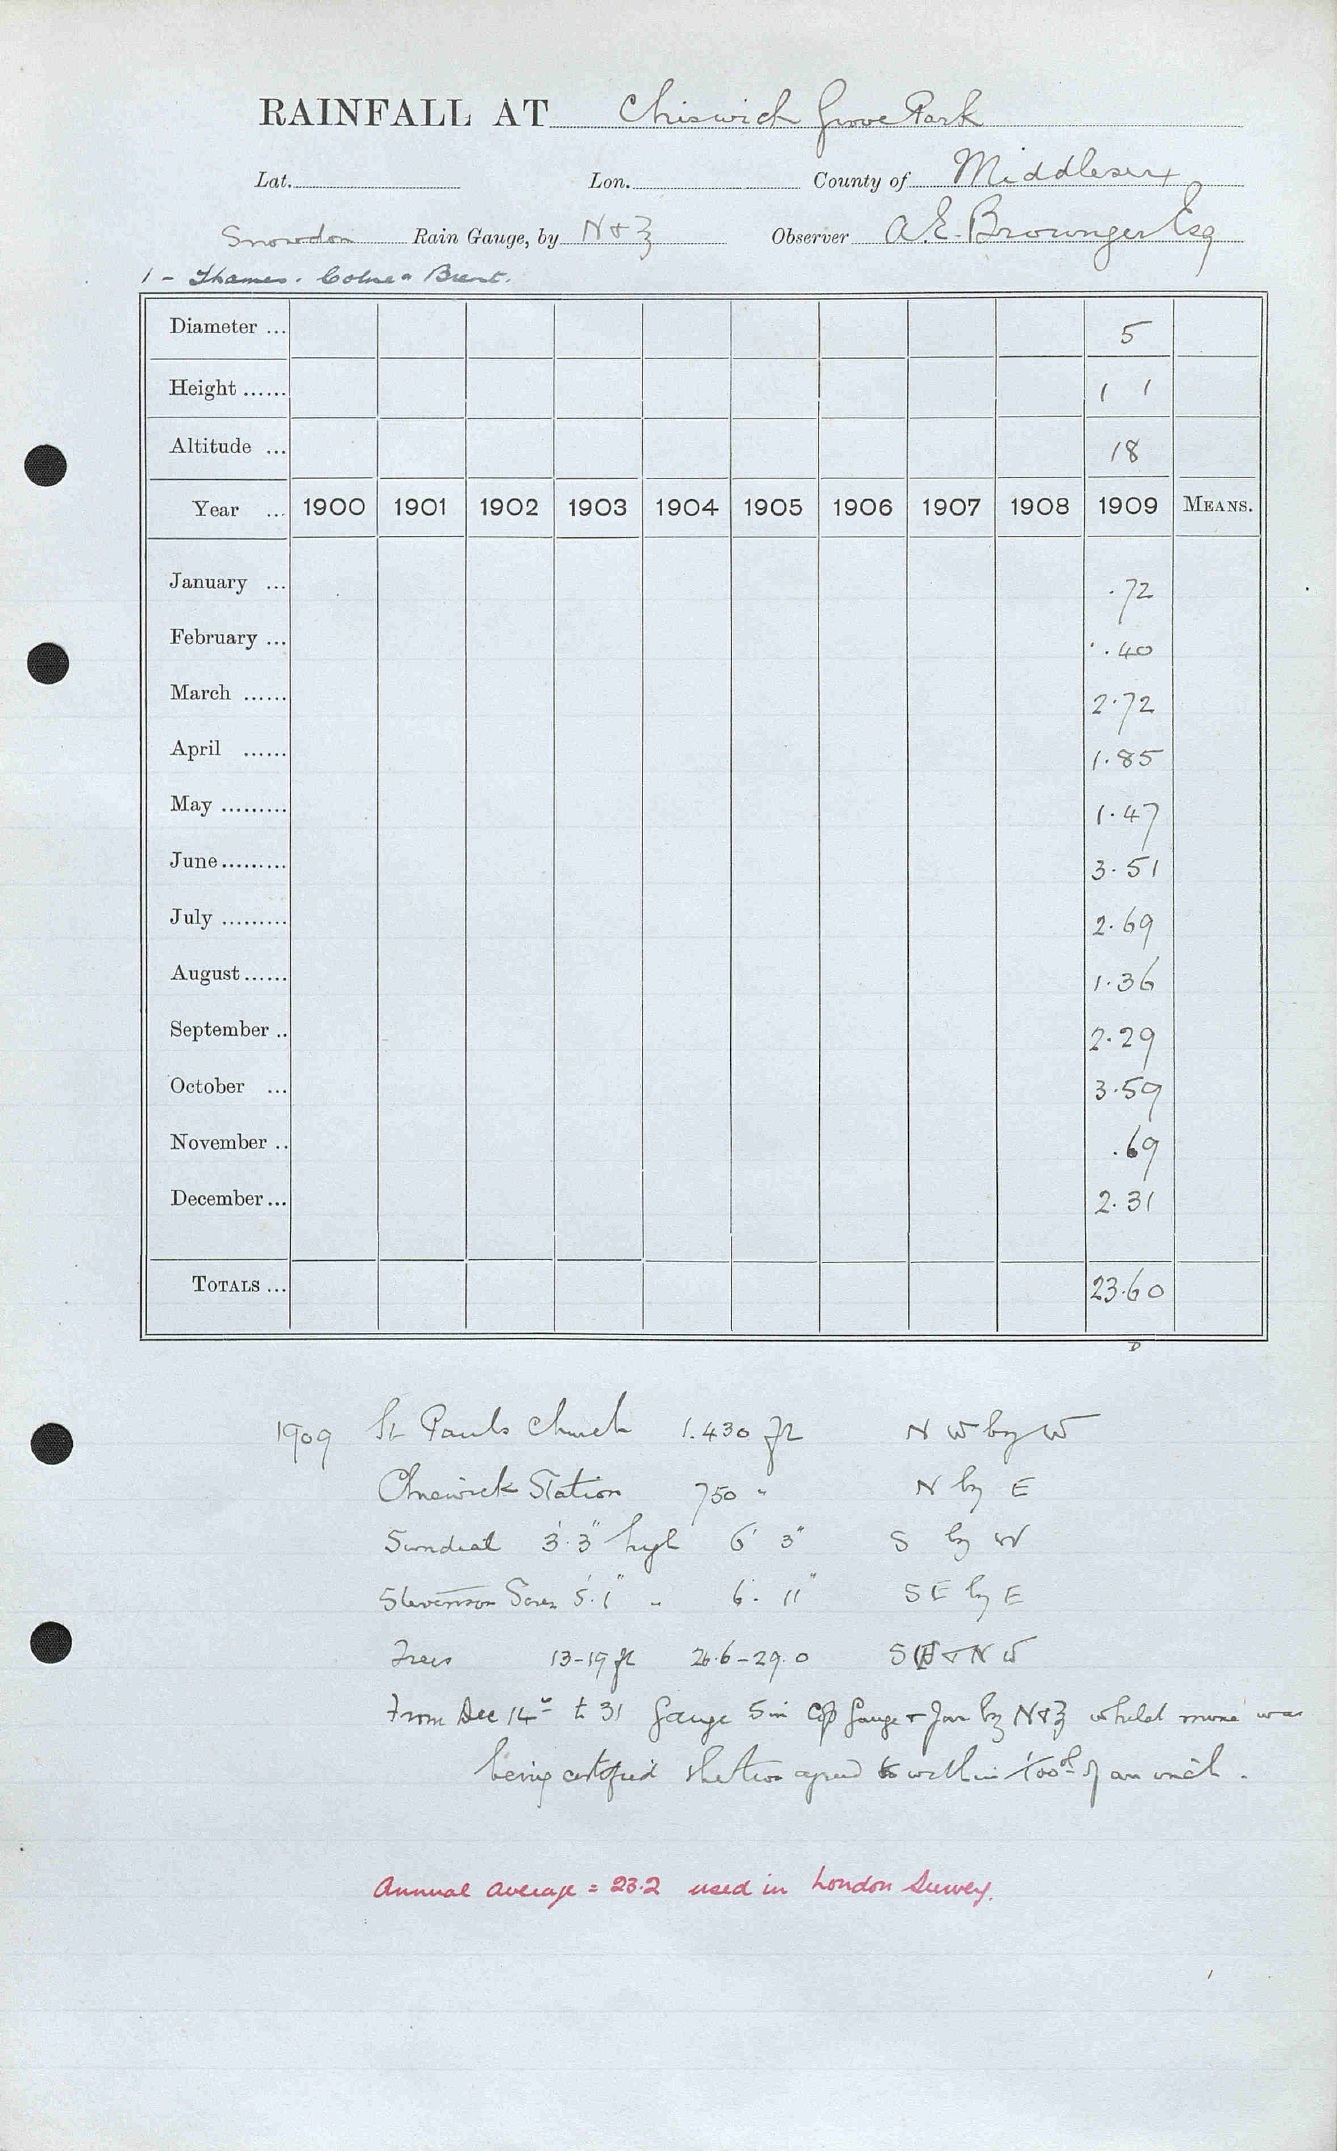 RAINFALL AT Chiswick Grove Park
Lat. Lon. County of Middlesex
Snowdon Rain Gauge, by N & Z Observer A.E. Brownger Esq
1 - Thames. Colne & Brent.
Diameter ... 5
Height ...... 1 1
Altitude ... 18
Year ... 1900 1901 1902 1903 1904 1905 1906 1907 1908 1909 MEANS.
January ... .72
February ... .40
March ...... 2.72
April ...... 1.85
May ......... 1.47
June ......... 3.51
July ......... 2.69
August ...... 1.36
September .. 2.29
October ... 3.59
November .. .69
December ... 2.31
TOTALS ... 23.60
D
1909 St Pauls Church 1.430 ft N W by W
Chiswick Station 750 " N by E
Sundial 3' 3" high 6' 3" S by W
Stevenson Screen 5' 1" " 6' 11" S E by E
Trees 13-19 ft 26.6-29.0 S & N W
From Dec 14th to 31 Gauge 5 in Cop Gauge & Jar by N & Z whilst mine was
being certified the two agreed to within 1/100th of an inch.
Annual Average = 23.2 used in London Survey.